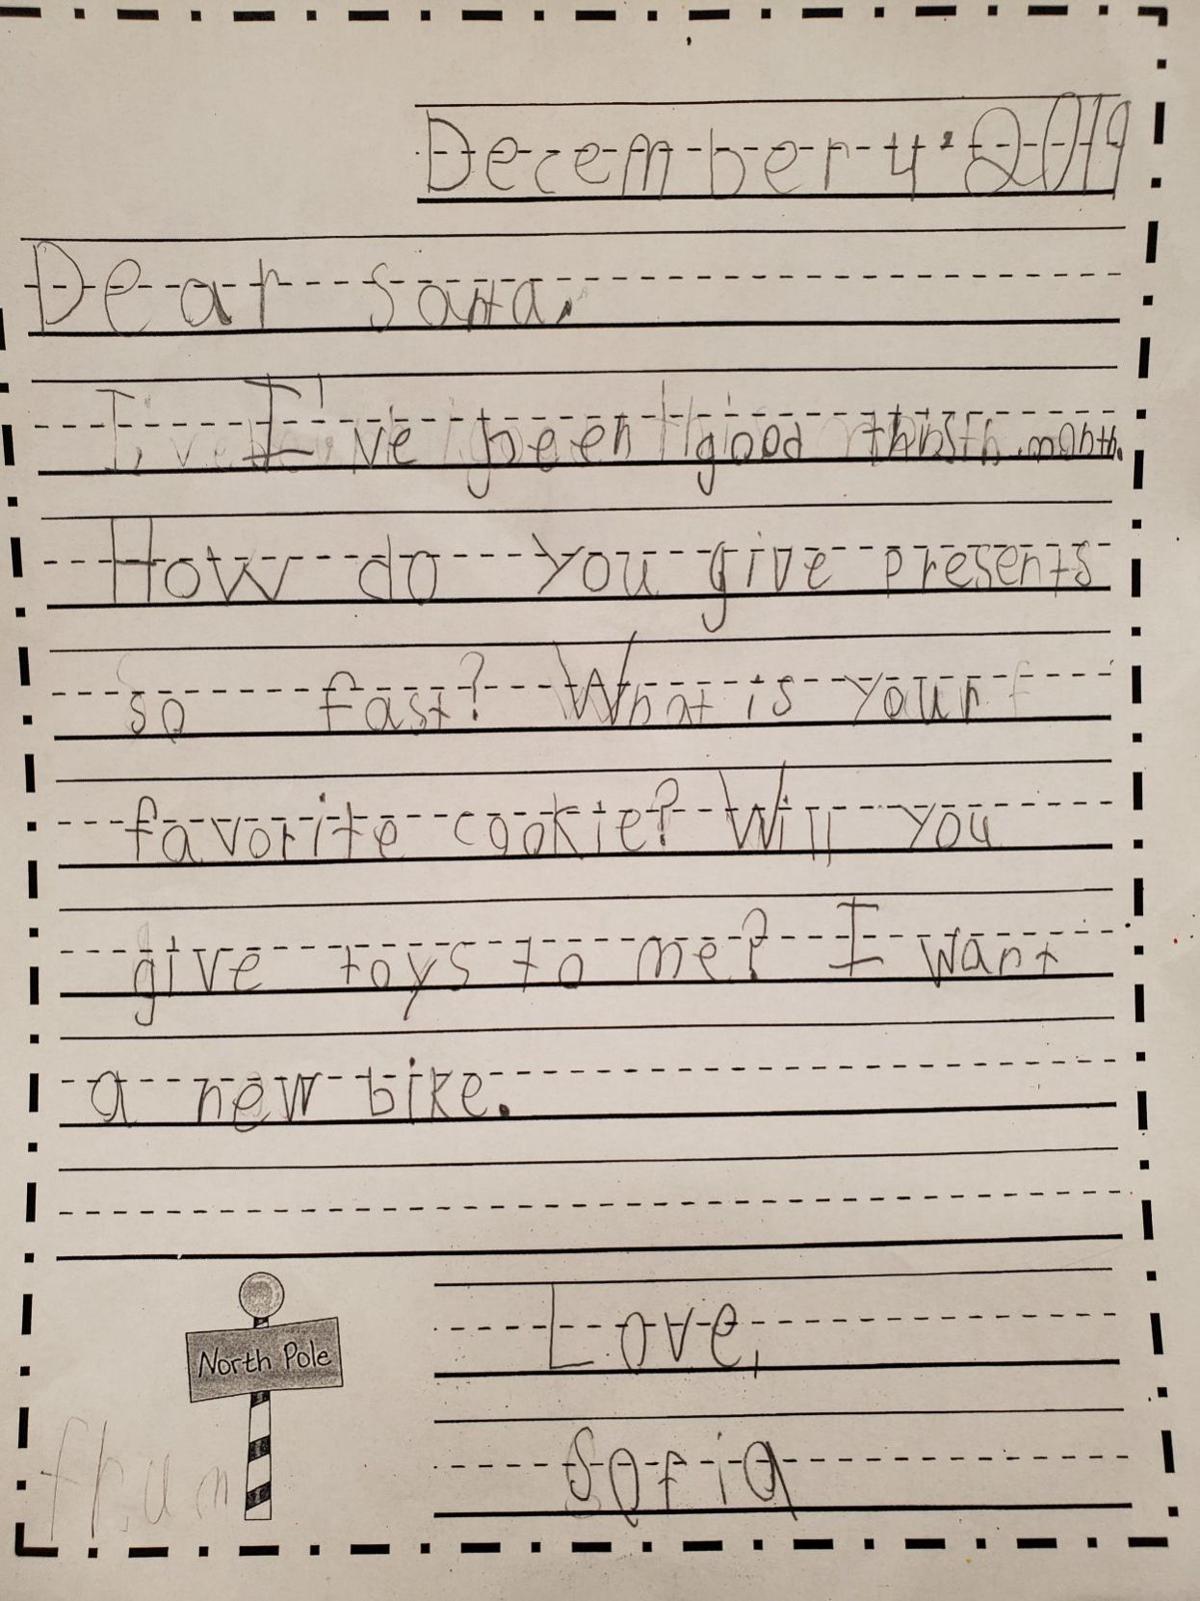 December 4, 2019
Dear Santa,
I've been good this month.
How do you give presents
so fast? What is your
favorite cookie? Will you
give toys to me? I want
a new bike.
North Pole
Love,
Sofia